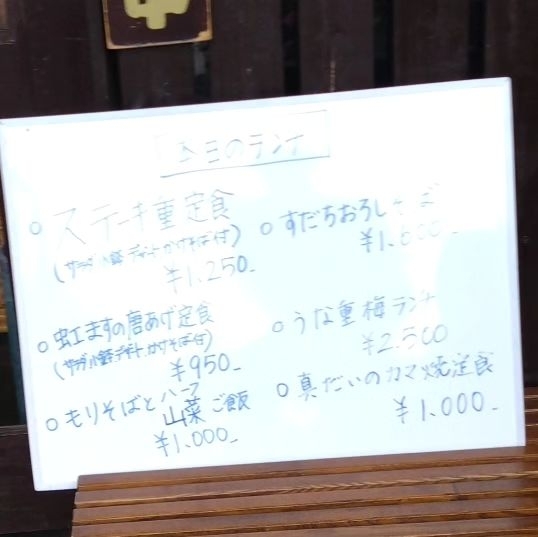 本日のランチ
○ ステーキ重定食
(サラダ小鉢デザートかけそば付)
¥1,250-
○ 虹ますの唐あげ定食
(サラダ小鉢デザートかけそば付)
¥950-
○ もりそばとハーフ
山菜ご飯
¥1,000-
○ すだちおろしそば
○ うな重梅ランチ
¥2,500
○ 真だいのカマ焼定食
¥1,000-